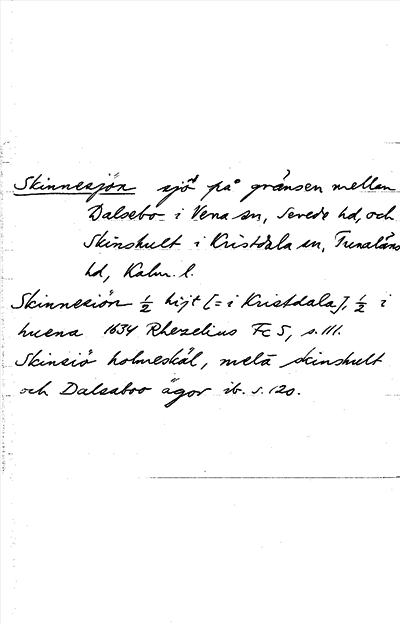 Skinnesjön sjö på gränsen mellan
Dalsebo i Vena sn, Sevede hd, och
Skinshult i Kristdala sn, Tunaläns
hd, Kalm. l.
Skinnesiön ½ hijt [= i Kristdala], ½ i
huena 1634 Rhezelius Fc 5, s. 111.
Skinsiö holmeskäl, melä skinshult
och Dalsaboo ägor ib. s. 120.